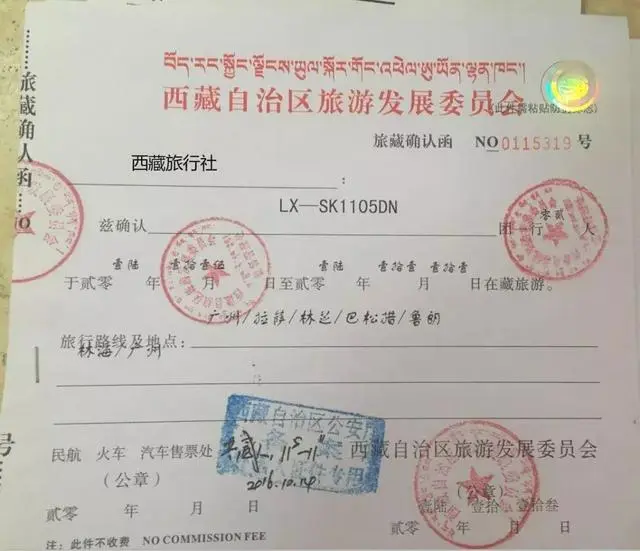 བོད་རང་སྐྱོང་ལྗོངས་ཡུལ་སྐོར་གོང་འཕེལ་ཨུ་ཡོན་ལྷན་ཁང་།
西藏自治区旅游发展委员会
旅藏确认函 NO 0115319 号
西藏旅行社：
LX—SK1105DN
兹确认 团一行 零贰 人
壹陆 壹拾壹 壹陆 壹拾壹 壹拾壹
于贰零 年 月 日至贰零 年 月 日在藏旅游。
广州/拉萨/林芝/巴松措/鲁朗
旅行路线及地点：
林海/广州
西藏自治区公安
民航 火车 汽车售票处 西藏自治区旅游发展委员会
2016.10.14
（公章） （公章）
壹陆 壹拾 壹拾叁
贰零 年 月 日 贰零 年 月 日
注：此件不收费 NO COMMISSION FEE
旅藏确人函